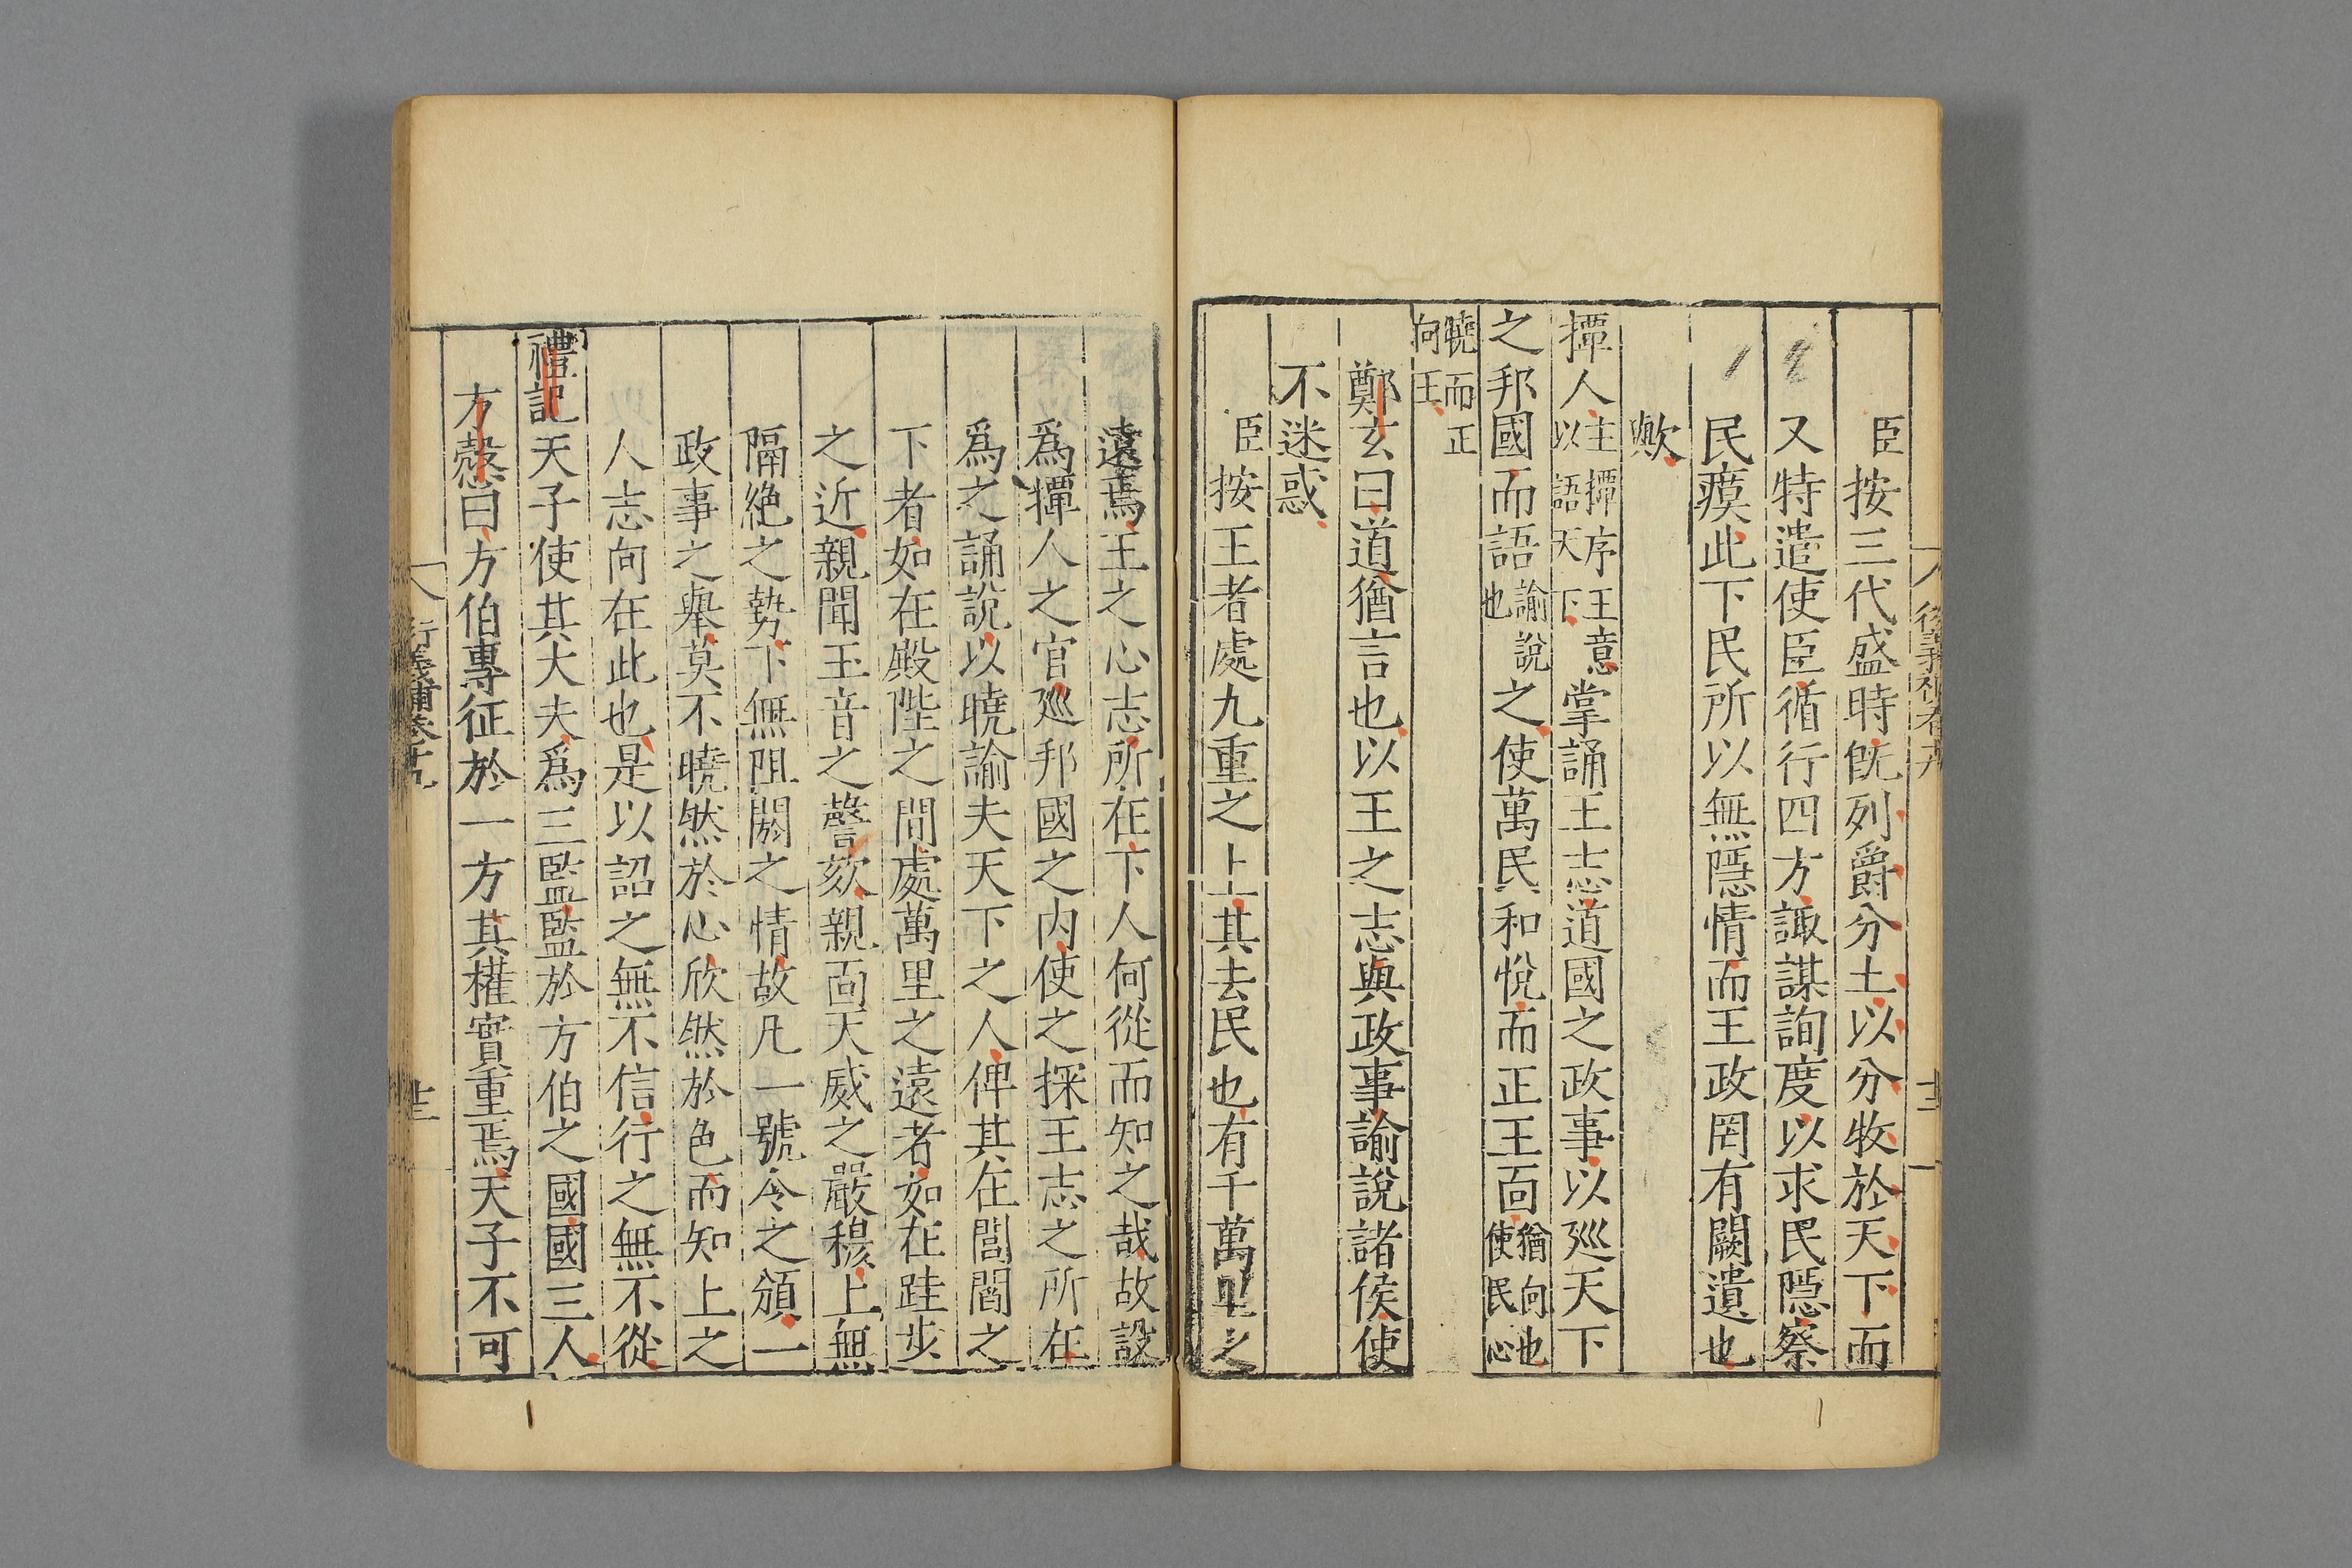 臣按三代盛時旣列爵分土以分牧於天下而
又特遣使臣循行四方諏謀詢度以求民隱察
民瘼此下民所以無隱情而王政罔有闕遺也
歟
撢人主撢序王意以語天下掌誦王志道國之政事以巡天下
之邦國而語諭說也之使萬民和悅而正王面猶向也使民心
曉而正向王
鄭玄曰道猶言也以王之志與政事諭說諸侯使
不迷惑
臣按王者處九重之上其去民也有千萬里之
遠焉王之心志所在下人何從而知之哉故設
爲撢人之官廵邦國之内使之探王志之所在
爲之誦說以曉諭夫天下之人俾其在閭閻之
下者如在殿陛之間處萬里之遠者如在跬步
之近親聞玉音之謦欬親面天威之嚴穆上無
隔絶之勢下無阻閼之情故凡一號令之頒一
政事之舉莫不曉然於心欣然於色而知上之
人志向在此也是以詔之無不信行之無不從
禮記天子使其大夫爲三監監於方伯之國國三人
方慤曰方伯專征於一方其權實重焉天子不可